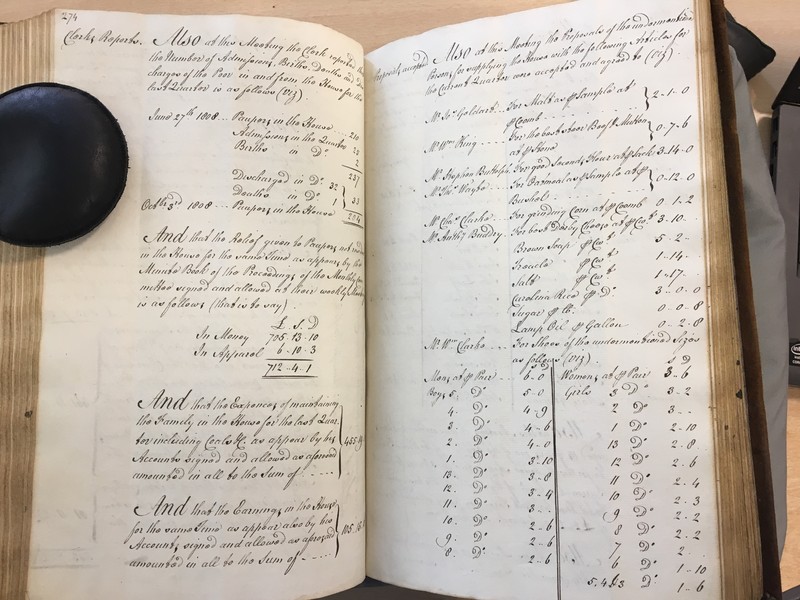 274
Clerks Reports.
Also at this Meeting the Clerk reported that
the Number of Admissions, Births Deaths and Dis
charges of the Poor in and from the House for the
last Quarter is as follows (viz).
June 27th 1808 ... Paupers in the House ... 210
Admissions in the Quarter 25
Births in Do. 2
237
Discharged in Do. 32
Deaths in Do. 1 33
Octbr. 3d. 1808 ... Paupers in the House 204
And that the Relief given to Paupers not
in the House for the same time as appears by the
Minute Book of the Proceedings of the Monthly
mittee signed and allowed at their weekly
is as follows (that is to say)
£. S. D
In Money 705-13-10
In Apparel 6-10-3
712-4-1
And that the Expences of maintaining
the Family in the House for the last Quar
ter including Coals &c. as appear by his
Accounts signed and allowed as aforesaid
amounted in all to the Sum of
And that the Earnings in the House
for the same time as appear also by his
Accounts signed and allowed as aforesaid
amounted in all to the Sum of
Proposals accepted
Also at this Meeting the Proposals of the undermentioned
Persons for supplying the House with the following Articles for
the Current Quarter were accepted and agreed to (viz).
For Malt as pr Sample at
pr Coomb 2-1-0
Mr. Wm. King For the best Stear Beef & Mutton
at pr Stone 0-7-6
Mr. Stephen Buttolph For good Seconds Flour at pr Sack 3-14-0
For Oatmeal as pr Sample at pr
Bushel 0-12-0
Mr. Chas. Clarke For grinding Corn at pr Coomb 0-1-2
For best Derby Cheese at pr Cwt. 3-10-
Brown Soap pr Cwt 5-2-
Treacle pr Cwt 1-14-
Salt pr Cwt 1-17-
Carolina Rice pr Do. 3-0-0
Sugar pr lb. 0-0-8
Lamp Oil pr Gallon 0-2-8
Mr. Wm. Clarke For Shoes of the undermentioned Sizes
as follows (viz).
s D s D
Mens at pr Pair 6-0 Womens at pr Pair 3-6
Boys 5 Do. 5-0 Girls 3 Do. 3-2
4. Do. 4-9 2 Do. 3--
3. Do. 4-6 1 Do. 2-10
2. Do. 4-0 13 Do. 2-8
1. Do. 3-10 12 Do. 2-6
13. Do. 3-8 11 Do. 2-4
12. Do. 3-4 10 Do. 2-3
11. Do. 3-- 9 Do. 2-2
10. Do. 2-6 8 Do. 2-2
9. Do. 2-6 7 Do. 2
8. Do. 2-6 6 Do. 1-10
5.4&3 Do. 1-6